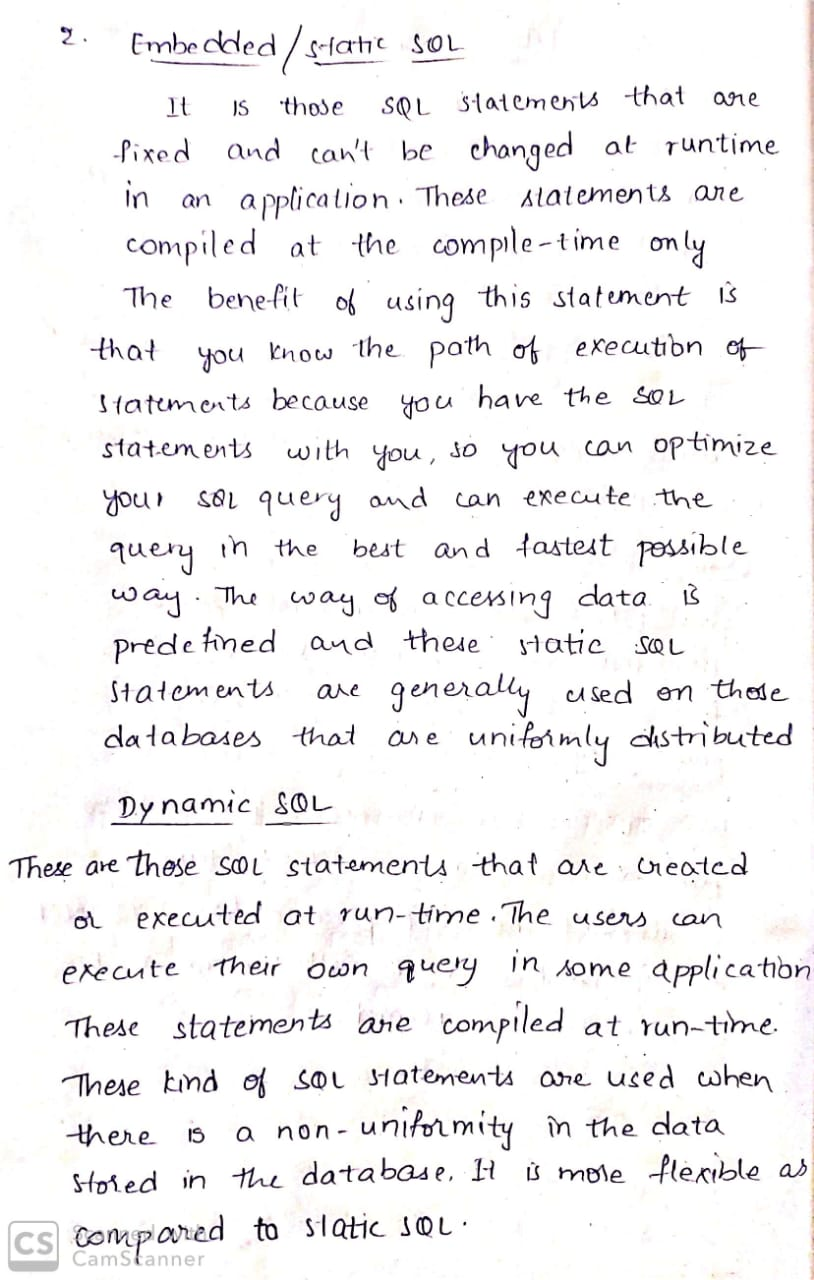 2. Embedded/static SQL
It is those SQL statements that are
fixed and can't be changed at runtime
in an application. These statements are
compiled at the compile-time only
The benefit of using this statement is
that you know the path of execution of
statements because you have the SQL
statements with you, so you can optimize
your SQL query and can execute the
query in the best and fastest possible
way. The way of accessing data is
predefined and these static SQL
statements are generally used on those
databases that are uniformly distributed
Dynamic SQL
These are those SQL statements that are created
or executed at run-time. The users can
execute their own query in some application
These statements are compiled at run-time.
These kind of SQL statements are used when
there is a non-uniformity in the data
stored in the database. It is more flexible as
compared to static SQL.
CS CamScanner